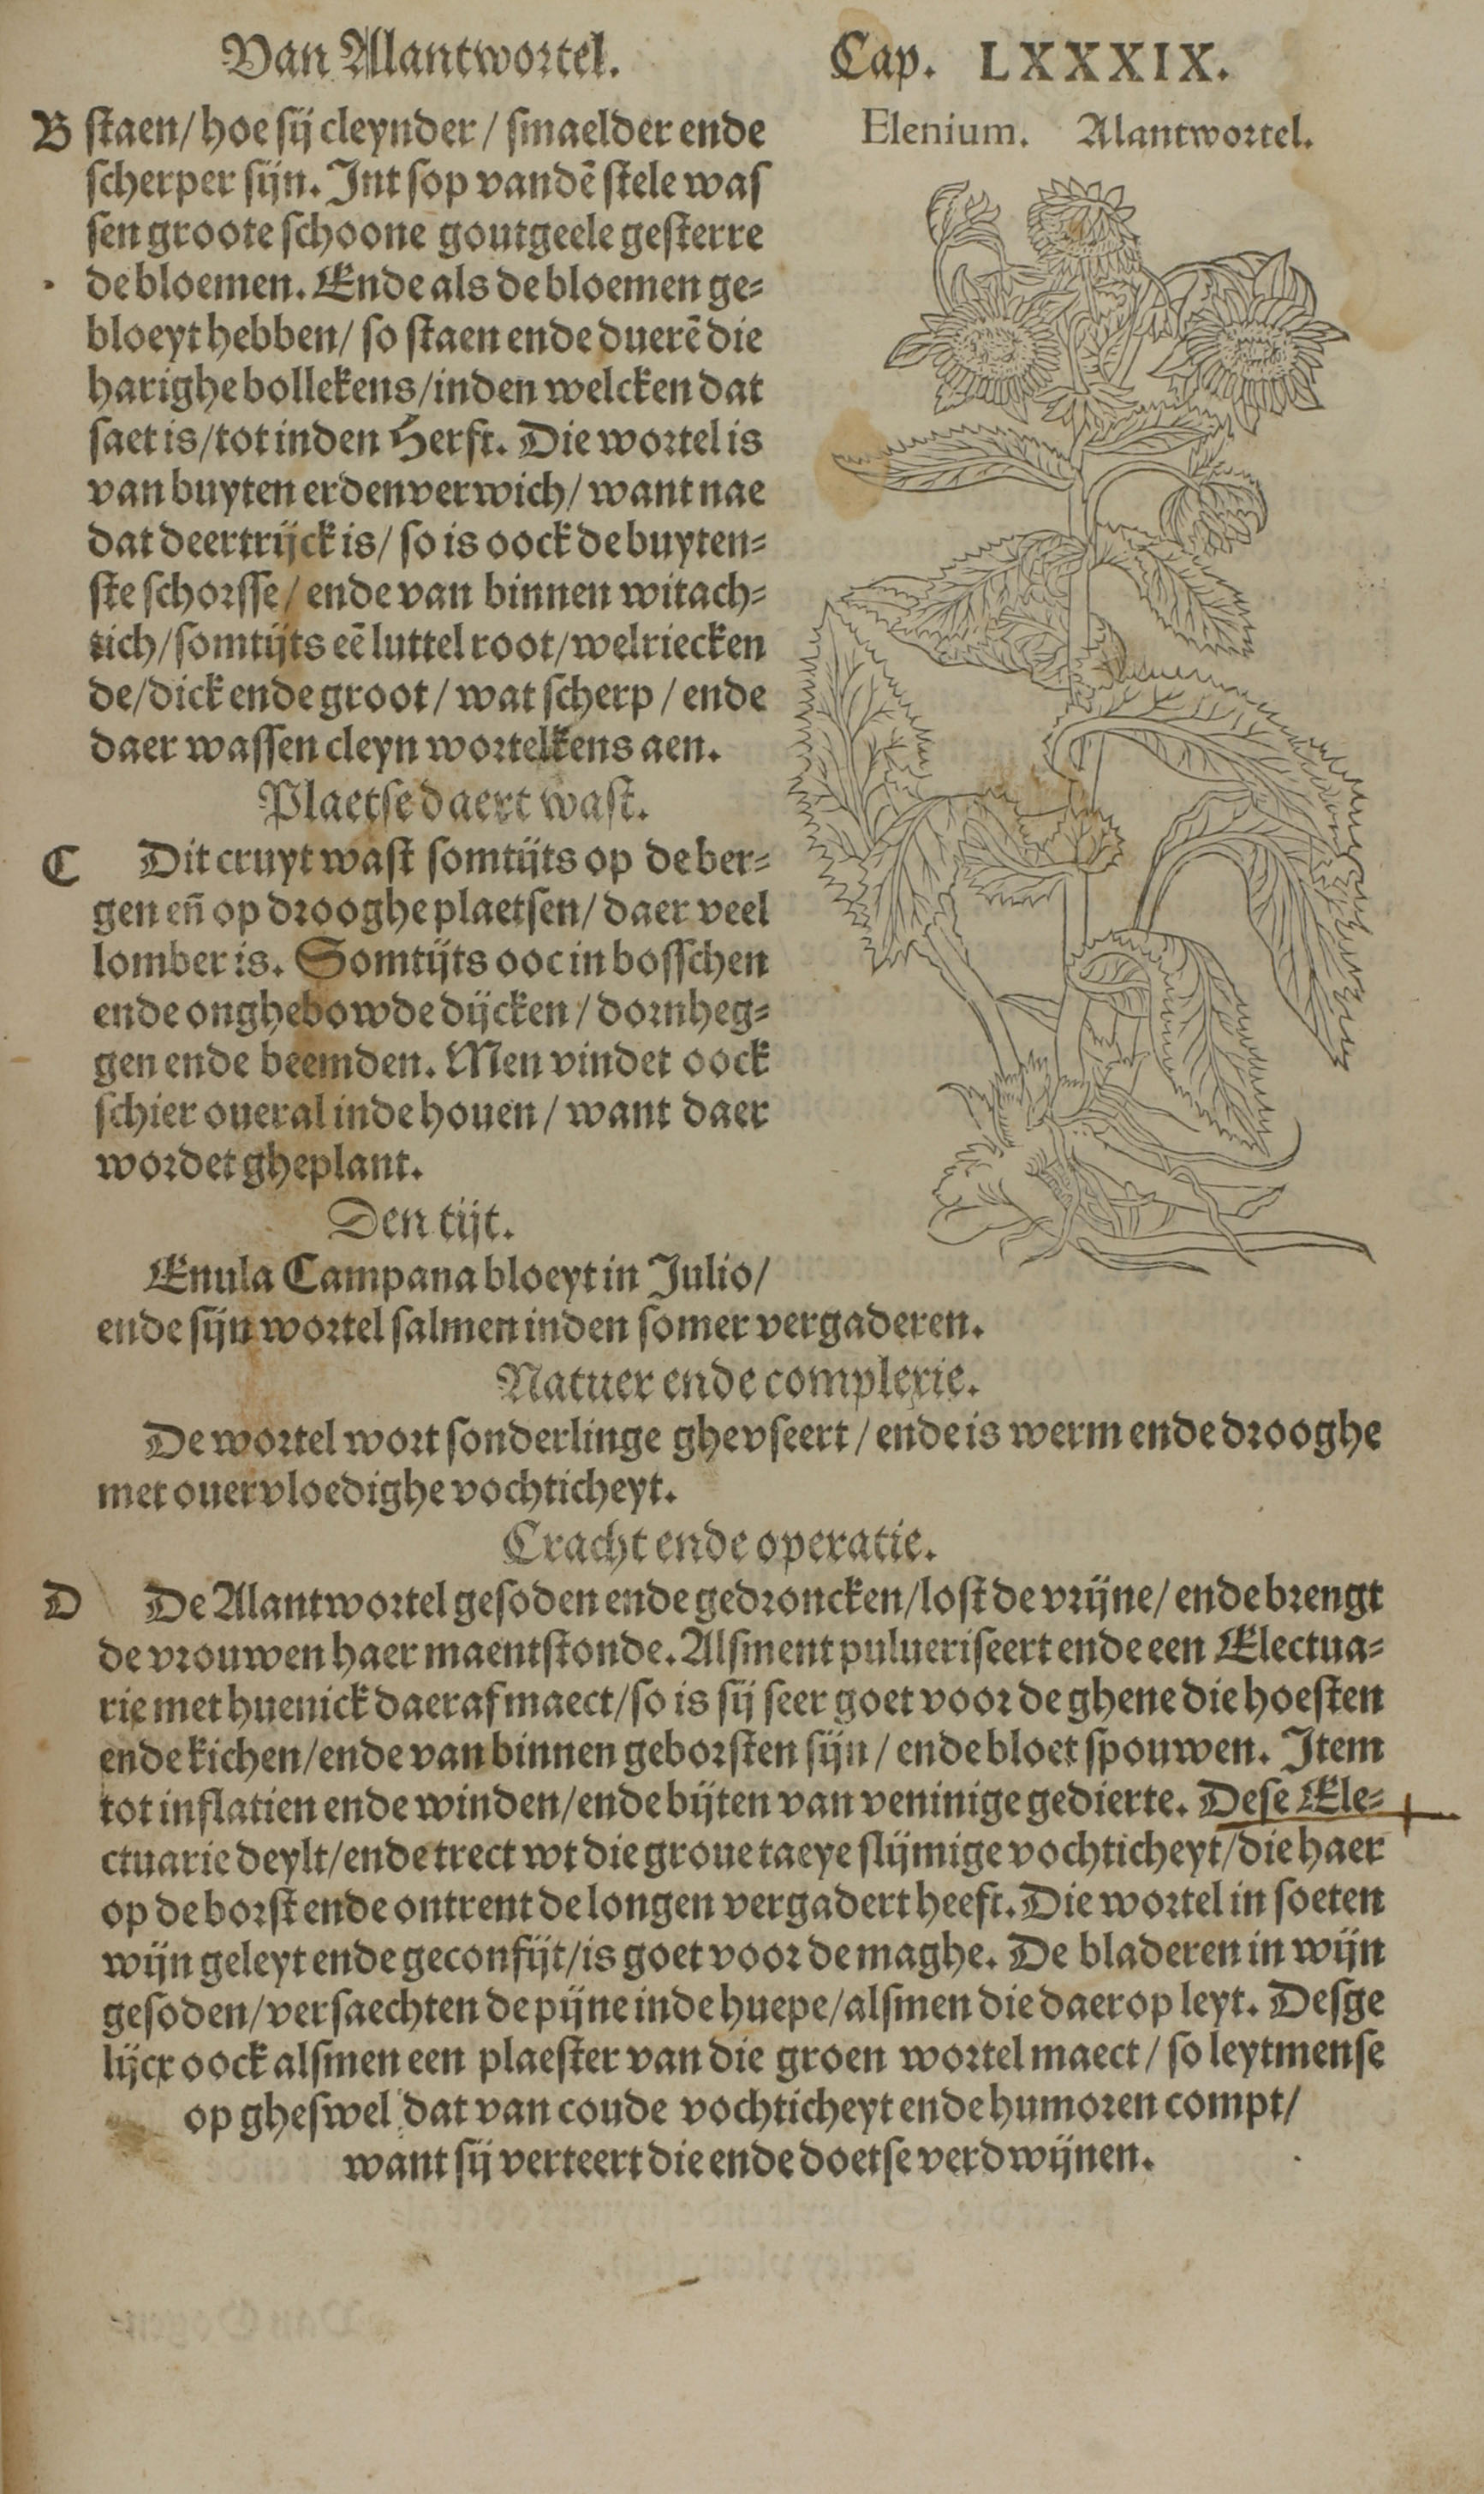 Van Alantwortel.
Cap. LXXXIX.
Elenium. Alantwortel.
B staen/ hoe sij cleynder / smaelder ende
scherper sijn. Int sop vandẽ stele was
sen groote schoone goutgeele gesterre
de bloemen. Ende als de bloemen ge⸗
bloeyt hebben/ so staen ende duerẽ die
harighe bollekens/inden welcken dat
saet is/tot inden Herfst. Die wortel is
van buyten erdenverwich/ want nae
dat deertrijck is/ so is oock de buyten⸗
ste schorsse/ ende van binnen witach⸗
tich/somtijts eẽ luttel root/welriecken
de/dick ende groot/ wat scherp / ende
daer wassen cleyn wortelkens aen.
Plaetse daert wast.
C Dit cruyt wast somtijts op de ber⸗
gen eñ op drooghe plaetsen/ daer veel
lomber is. Somtijts ooc in bosschen
ende onghebowde dijcken / dornheg⸗
gen ende beemden. Men vindet oock
schier oueral inde houen / want daer
wordet gheplant.
Den tijt.
Enula Campana bloeyt in Julio/
ende sijn wortel salmen inden somer vergaderen.
Natuer ende complexie.
De wortel wort sonderlinge ghevseert / ende is werm ende drooghe
met ouervloedighe vochticheyt.
Cracht ende operatie.
D De Alantwortel gesoden ende gedroncken/lost de vrijne/ ende brengt
de vrouwen haer maentstonde. Alsment pulueriseert ende een Electua⸗
rie met huenick daeraf maect/so is sij seer goet voor de ghene die hoesten
ende kichen/ende van binnen geborsten sijn / ende bloet spouwen. Item
tot inflatien ende winden/ende bijten van veninige gedierte. Dese Ele⸗
ctuarie deylt/ende trect wt die groue taeye slijmige vochticheyt/die haer
op de borst ende ontrent de longen vergadert heeft. Die wortel in soeten
wijn geleyt ende geconfijt/is goet voor de maghe. De bladeren in wijn
gesoden/versaechten de pijne inde huepe/alsmen die daer op leyt. Desge
lijcx oock alsmen een plaester van die groen wortel maect / so leytmense
op gheswel dat van coude vochticheyt ende humoren compt/
want sij verteert die ende doetse verdwijnen.